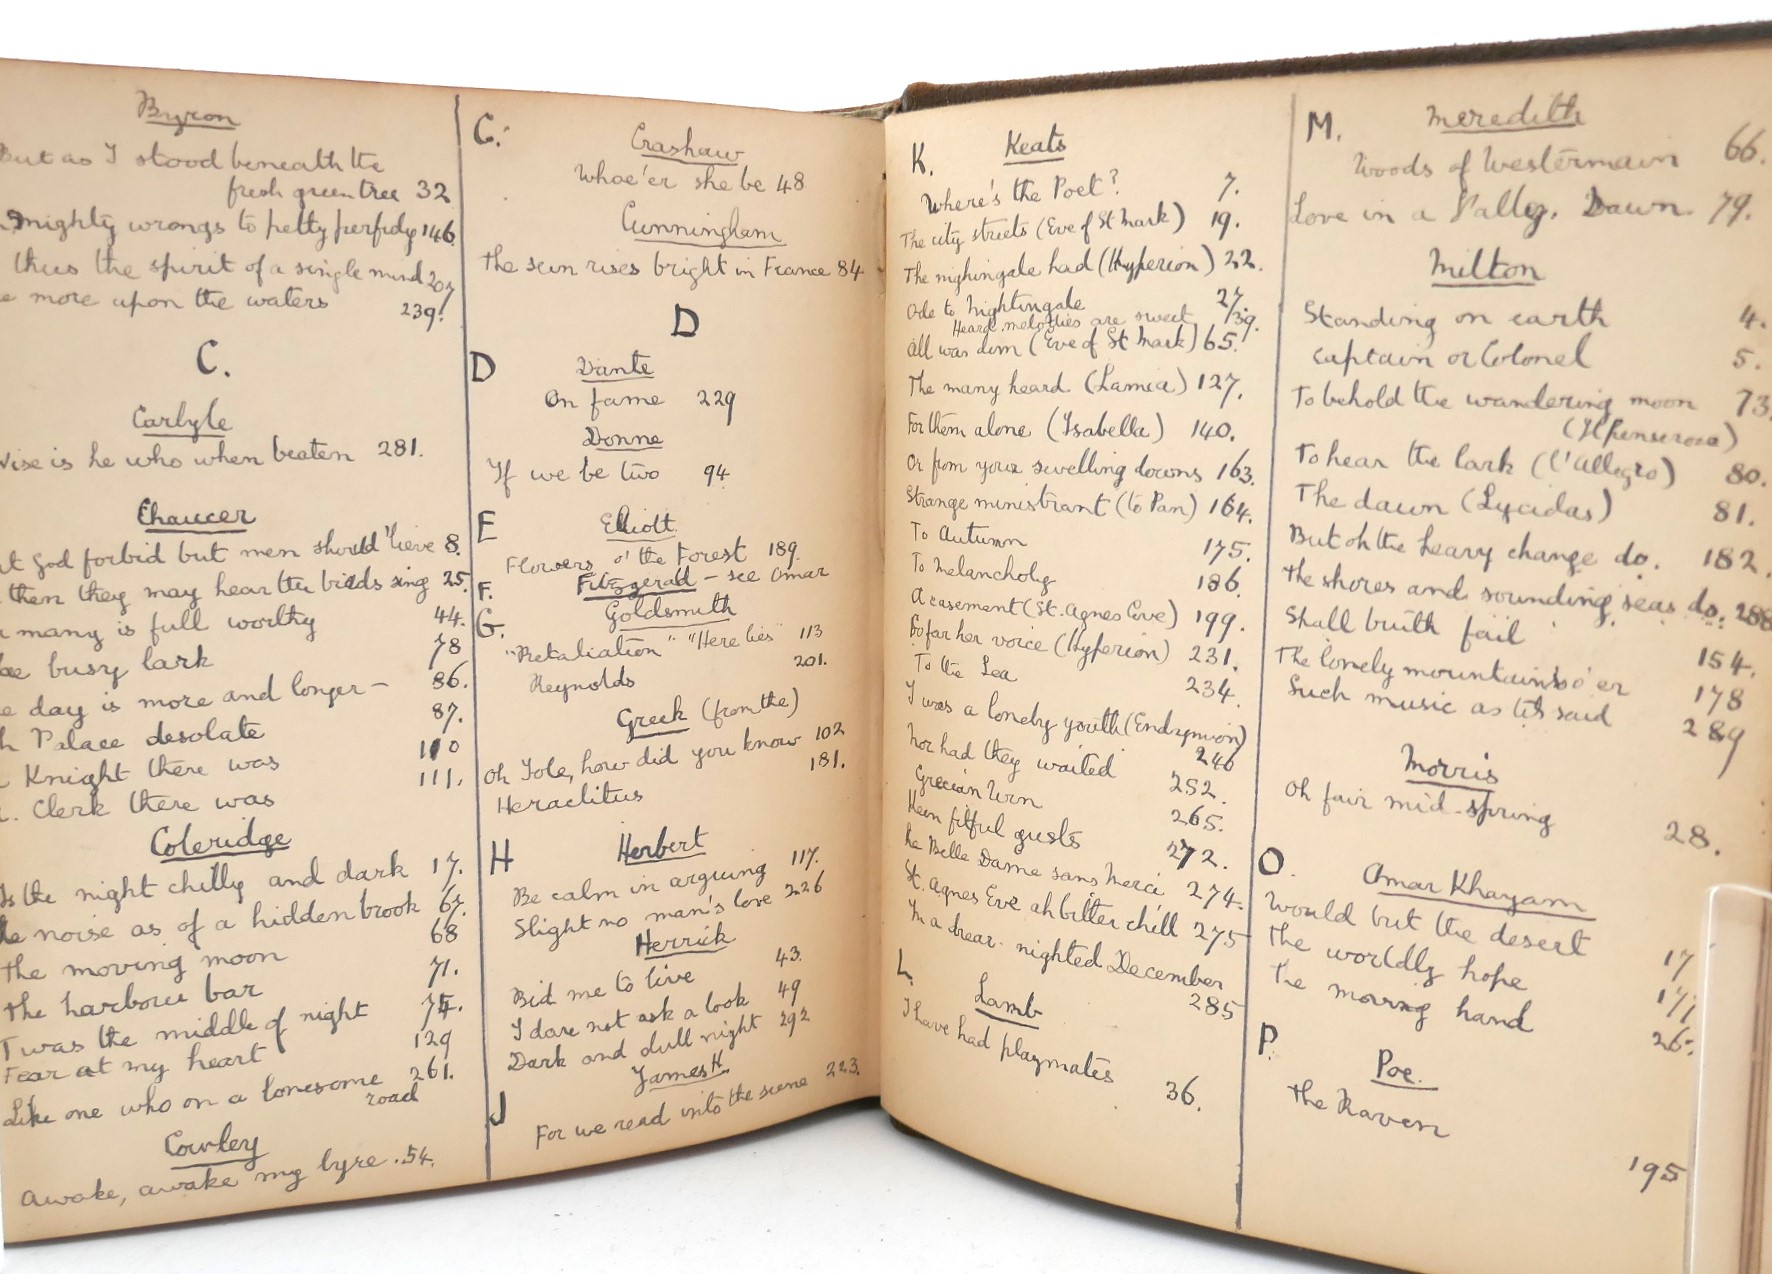 Byron
But as I stood beneath the
fresh green tree 32
mighty wrongs to petty perfidy 146.
thus the spirit of a single mind 207
more upon the waters
239.
C.
Carlyle
Wise is he who when beaten 281.
Chaucer
God forbid but men should 'lieve 8.
then they may hear the birds sing 25.
many is full worthy 44.
busy lark 78
day is more and longer — 86.
Palace desolate 87.
Knight there was 110
Clerk there was 111.
Coleridge
Is the night chilly and dark 17.
noise as of a hidden brook 67.
The moving moon 68
The harbour bar 71.
Twas the middle of night 75.
Fear at my heart 129
Like one who on a lonesome 261.
road
Cowley
Awake, awake my lyre . 54.
C.
Crashaw
Whoe'er she be 48
Cunningham
The sun rises bright in France 84.
D
D Dante
On fame 229
Donne
If we be two 94
E Elliott
Flowers o' the Forest 189.
F. Fitzgerald – see Omar
G. Goldsmith
"Retaliation" "Here lies" 113
Reynolds 201.
Greek (from the)
Oh Iole, how did you know 102
Heraclitus 181.
H Herbert
Be calm in arguing 117.
Slight no man's love 226
Herrick
Bid me to live 43.
I dare not ask a look 49
Dark and dull night 292
James H.
J For we read into the scene 223.
K. Keats
Where's the Poet? 7.
The city streets (Eve of St Mark) 19.
The nighingale had (Hyperion) 22.
Ode to Nightingale 27.
Heard melodies are sweet 39.
All was dim (Eve of St Mark) 65.
The many heard (Lamia) 127.
For them alone (Isabella) 140.
Or from your swelling downs 163.
Strange ministrant (to Pan) 164.
To Autumn 175.
To Melancholy 186.
A casement (St. Agnes Eve) 199.
So far her voice (Hyperion) 231.
To the Sea 234.
I was a lonely youth (Endymion)
246
Nor had they waited 252.
Grecian Urn 265.
Keen fitful gusts 272.
La Belle Dame sans Merci 274.
St. Agnes Eve ah bitter chill 275
In a drear-nighted December
285
L. Lamb
I have had playmates
36.
M. Meredith
Woods of Westermain 66.
Love in a Valley. Dawn. 79.
Milton
Standing on earth 4.
Captain or Colonel 5.
To behold the wandering moon 73.
(Il Penseroso)
To hear the lark (L'Allegro) 80.
The dawn (Lycidas) 81.
But oh the heavy change do. 182.
The shores and sounding seas do. 288
Shall truth fail 154.
The lonely mountains o'er 178
Such music as tis said 289
Morris
Oh fair mid-spring 28.
O. Omar Khayam
Would but the desert 17
The worldly hope
The moving hand 26.
P. Poe.
The Raven
195